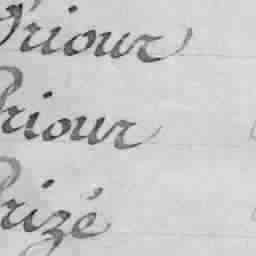 Priour
Priour
Prizé